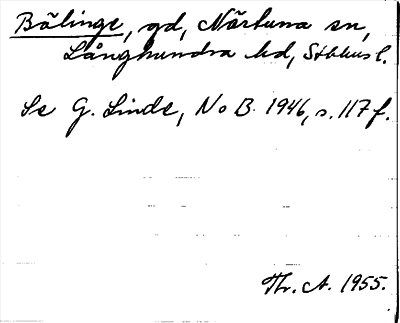 Bälinge, gd, Närtuna sn,
Långhundra hd, Sthlms l.
Se G. Linde, NoB. 1946, s. 117 f.
Thr. A. 1955.